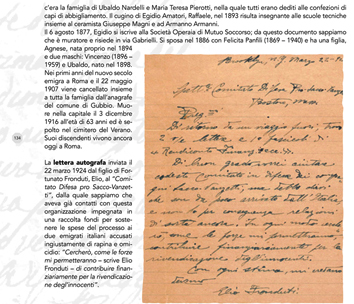 c'era la famiglia di Ubaldo Nardelli e Maria Teresa Pierotti, nella quale tutti erano dediti alle confezioni di
capi di abbigliamento. Il cugino di Egidio Amatori, Raffaele, nel 1893 risulta insegnante alle scuole tecniche
insieme al ceramista Giuseppe Magni e ad Armanno Armanni.
Il 6 agosto 1877, Egidio si iscrive alla Società Operaia di Mutuo Soccorso; da questo documento sappiamo
che è muratore e risiede in via Gabrielli. Si sposa nel 1886 con Felicita Panfili (1869 – 1940) e ha una figlia,
Agnese, nata proprio nel 1894
e due maschi: Vincenzo (1896 –
1959) e Ubaldo, nato nel 1898.
Nei primi anni del nuovo secolo
emigra a Roma e il 22 maggio
1907 viene cancellato insieme
a tutta la famiglia dall'anagrafe
del comune di Gubbio. Muo-
re nella capitale il 3 dicembre
1916 all'età di 63 anni ed è se-
polto nel cimitero del Verano.
Suoi discendenti vivono ancora
oggi a Roma.
134
La lettera autografa inviata il
22 marzo 1924 dal figlio di For-
tunato Fronduti, Elio, al "Comi-
tato Difesa pro Sacco-Vanzet-
ti", dalla quale sappiamo che
aveva già contatti con questa
organizzazione impegnata in
una raccolta fondi per soste-
nere le spese del processo ai
due emigrati italiani accusati
ingiustamente di rapina e omi-
cidio: "Cercherò, come le forze
mi permetteranno – scrive Elio
Fronduti – di contribuire finan-
ziariamente per la rivendicazio-
ne degl'innocenti".
Brooklyn, N.Y. Marzo 22-
Spett. Comitato Difesa Sacco-
Boston, Mass.
Di ritorno da un viaggio fuori, trovo
2 lettere, e
Di buon grado vorrei aiutare
codesto Comitato in difesa di
Sacco Vanzetti, ma
che son da poco arrivato dall'Italia,
e non ho per conseguenza relazioni
di
come le forze mi permetteranno
contribuire finanziariamente per la
rivendicazione degl'innocenti.
Con ogni stima, mi
Elio Fronduti